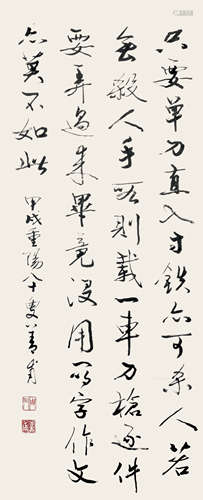 只要单刀直入寸铁亦可杀人若
无杀人手段则载一车刀枪逐件
要弄过来毕竟没用写字作文
亦莫不如此
甲戌重阳八十叟